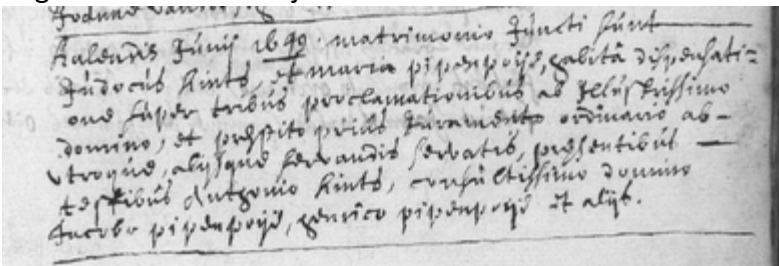 Kalendis Junij 1649 matrimonio Juncti sunt
Judocus Kints et maria pipenpoije, habitâ dispensati=
one super tribus proclamationibus ab Illustrissimo
domino, et præstito prius Juramento ordinario ab
utroque, alijsque servandis servatis, præsentibus
testibus Anthonio Kints, consultissimo domino
Jacobo pipenpoije, henrico pipenpoije et alijs.